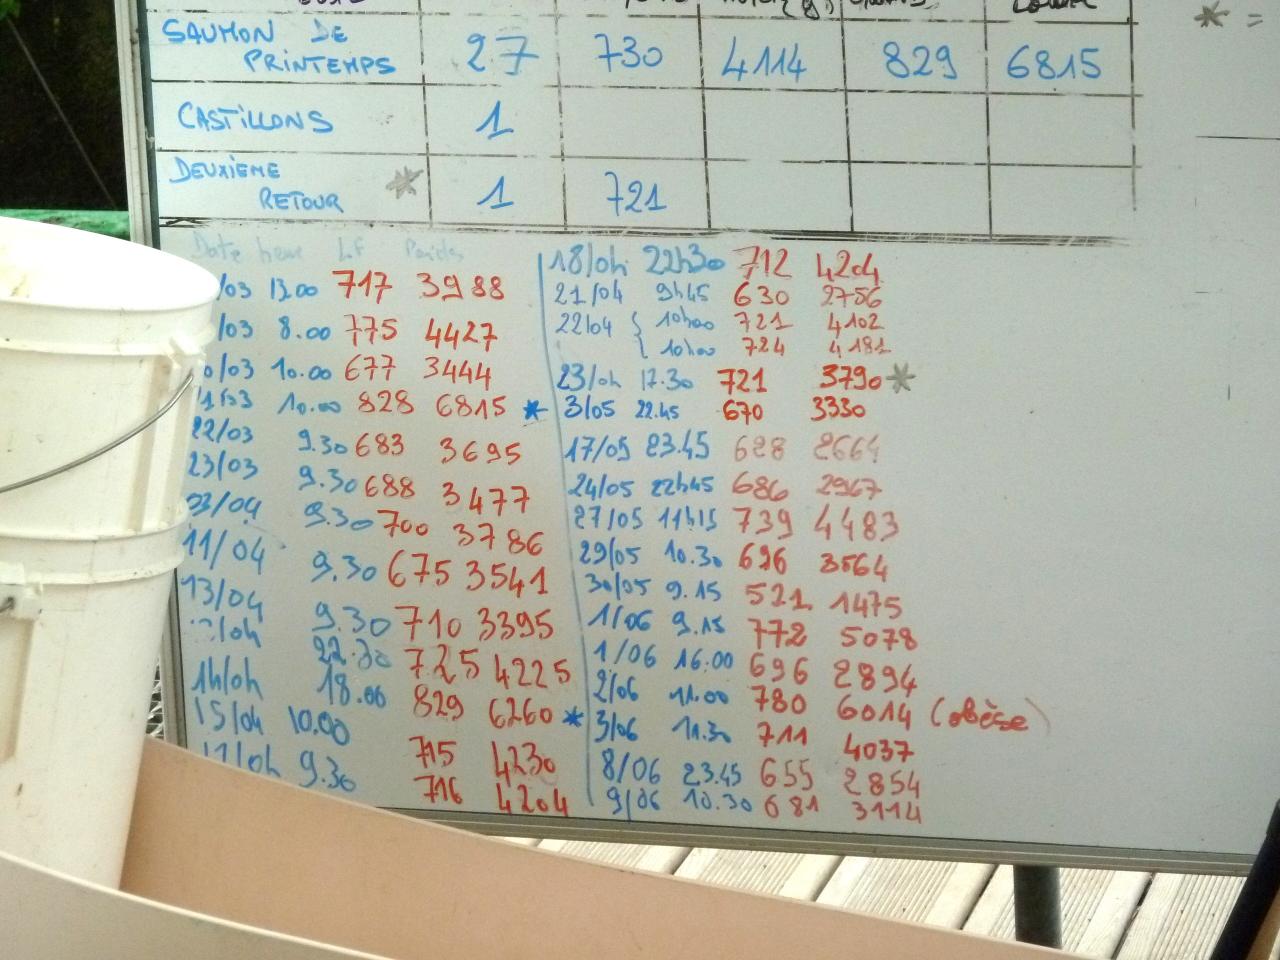 SAUMON DE
PRINTEMPS 27 730 4114 829 6815
CASTILLONS 1
DEUXIEME
RETOUR * 1 721
* =
Date heure LF Poids
/03 13.00 717 3988
/03 8.00 775 4427
/03 10.00 677 3444
10.00 828 6815 *
22/03 9.30 683 3695
23/03 9.30 688 3477
03/04 9.30 700 3786
11/04 9.30 675 3541
13/04 9.30 710 3395
/04 22.30 725 4225
14/04 18.00 829 6260 *
15/04 10.00 715 4230
17/04 9.30 716 4204
18/04 22h30 712 4204
21/04 9h45 630 2756
22/04 { 10h00 721 4102
{ 10h00 724 4181
23/04 17.30 721 3790 *
3/05 22.45 670 3330
17/05 23.45 628 2664
24/05 22h45 686 2967
27/05 11h15 739 4483
29/05 10.30 696 3564
30/05 9.15 521 1475
1/06 9.15 772 5078
1/06 16.00 696 2894
2/06 11.00 780 6014 (obèse)
3/06 11.30 711 4037
8/06 23.45 655 2854
9/06 10.30 681 3114